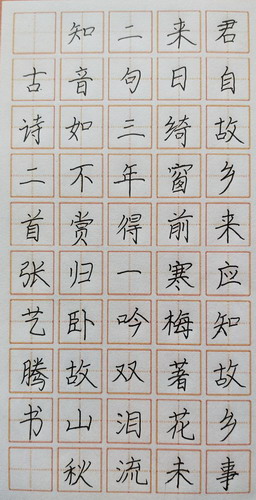 君自故乡来应知故乡事
来日绮窗前寒梅著花未
二句三年得一吟双泪流
知音如不赏归卧故山秋
古诗二首张艺腾书